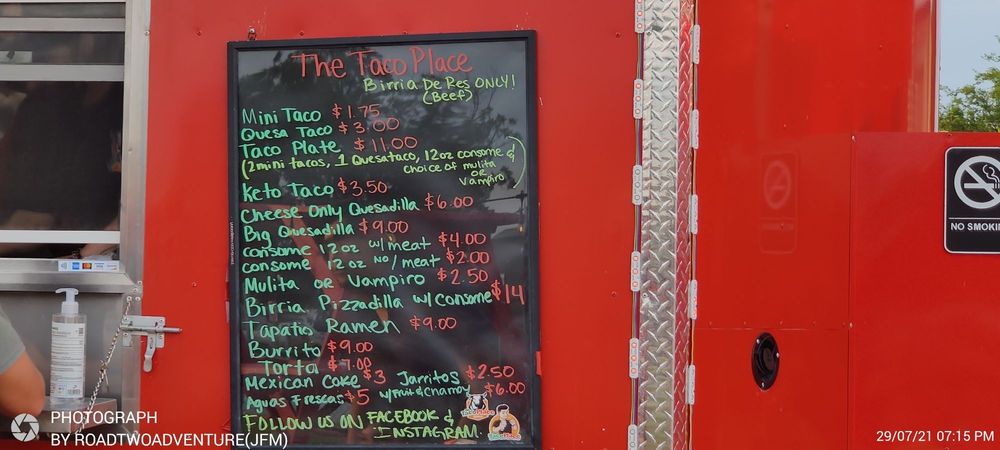 The Taco Place
Birria De Res ONLY!
(Beef)
Mini Taco $1.75
Quesa Taco $3.00
Taco Plate $11.00
(2 mini tacos, 1 Quesataco, 12oz consome &
choice of mulita
or
Vampiro)
Keto Taco $3.50
Cheese Only Quesadilla $6.00
Big Quesadilla $9.00
consome 12oz w/ meat $4.00
consome 12oz no/meat $2.00
Mulita or Vampiro $2.50
Birria Pizzadilla w/consome $14
Tapatio Ramen $9.00
Burrito $9.00
Torta $7.00
Mexican Coke $3 Jarritos $2.50
Aguas Frescas $5 w/Fruit & Chamoy $6.00
FOLLOW US ON FACEBOOK &
INSTAGRAM
NO SMOKI
PHOTOGRAPH
BY ROADTWOADVENTURE(JFM)
29/07/21 07:15 PM